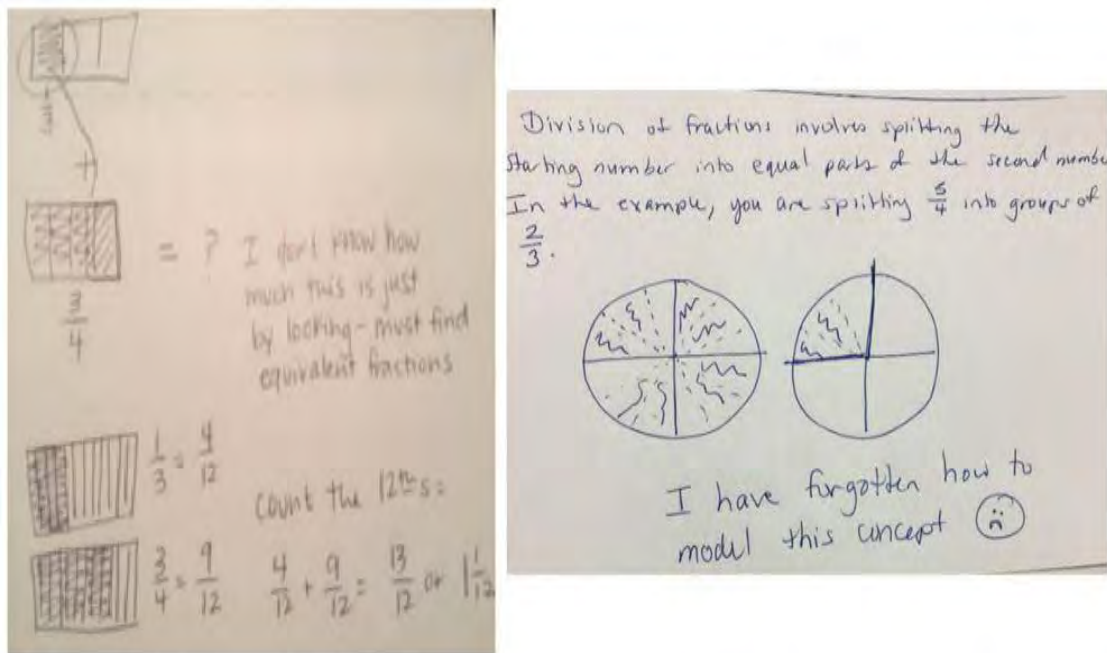 +
3/4
= ? I don't know how
much this is just
by looking - must find
equivalent fractions
1/3 = 4/12
count the 12ths:
3/4 = 9/12
4/12 + 9/12 = 13/12 or 1 1/12
Division of fractions involves splitting the
starting number into equal parts of the second number
In the example, you are splitting 5/4 into groups of
2/3.
I have forgotten how to
model this concept